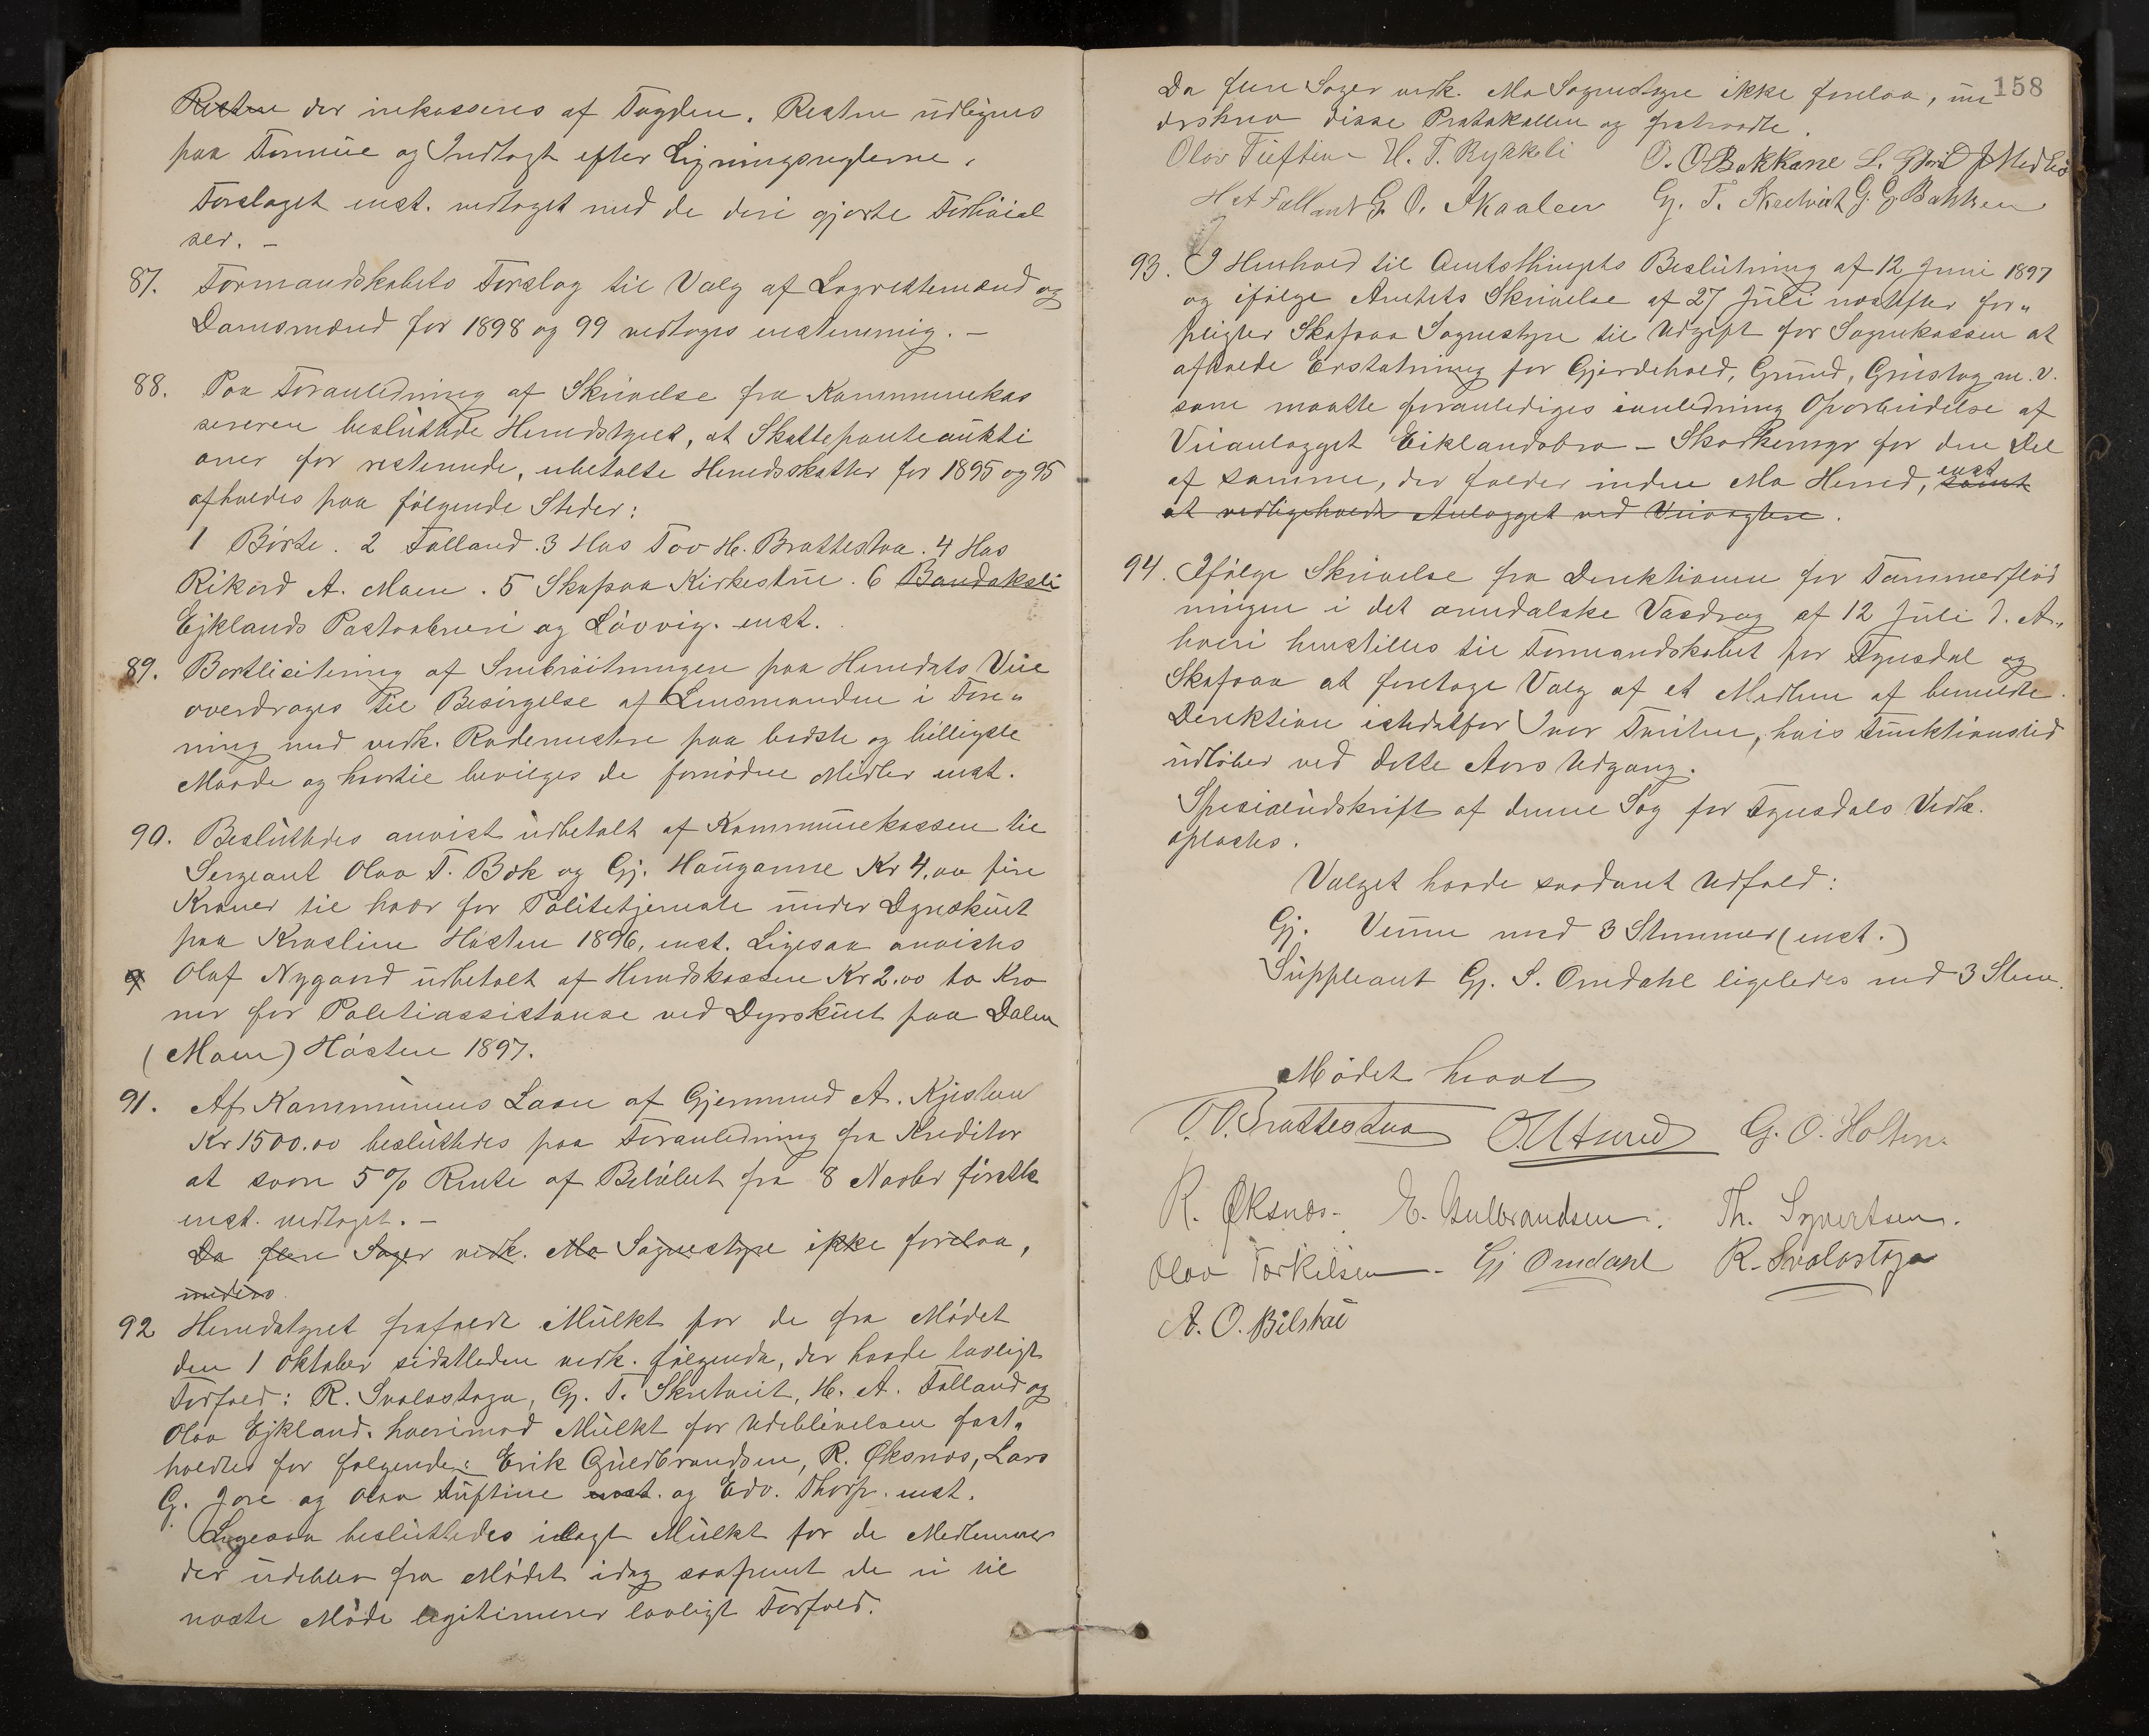 Resten der inkasseres af Fogden. Resten udlignes
paa Formue og Indtægt efter Ligningsreglerne.
Forslaget enst. vedtaget med de deri gjorte Forhøiel
ser. –
87. Formandskabets Forslag til Valg af Lagrettemænd og
Domsmænd for 1898 og 99 vedtoges enstemmig. –
88. Paa Foranledning af Skrivelse fra Kommunekas
sereren besluttede Herredstyret, at Skattepanteaukti
oner for resterende, ubetalte Herredsskatter for 1895 og 95
afholdes paa følgende Steder:
1 Børte. 2 Falland. 3 Hos Tov H. Brattestaa. 4 Hos
Rikard A. Moen. 5 Skafsaa Kirkestue. 6 Bandaksli
Ejklands Postaabneri og Løvvig. enst.
89. Bortlisitering af Snebrøitningen paa Herredets Veie
overdrages til Besørgelse af Lensmanden i Fore„
ning med vedk. Rodemestre paa bedste og billigste
Maade og hvortil bevilges de fornødne Midler enst.
90. Besluttedes anvist udbetalt af Kommunekassen til
Sergeant Olav T. Bøk og Gj. Hauganne Kr 4.00 fire
Kroner til hver for Polititjeneste under Dyrskuet
paa Kroslien Høsten 1896, enst. Ligesaa anvistes
af Olaf Nygaard udbetalt af Herredskassen Kr 2.00 to Kro
ner for Politiassistanse ved Dyrskuet paa Dalen
(Moen) Høsten 1897.
91. Af Kommunens Laan af Gjermund A. Kjesten
Kr 1500.00 besluttedes paa Foranledning fra Kreditor
at svare 5% Rente af Beløbet fra 8 Novbr førstk
enst. vedtaget. –
Da flere Sager vedk. Mo Sognestyre ikke forelaa,
unders
92 Herredstyret frafaldt Mulkt for de fra Mødet
den 1 Oktober sidstleden vedk. følgende, der havde lovligt
Forfald: R. Svalastoga, Gj. T. Skretveit, H. A. Falland og
Olav Ejkland. hvorimod Mulkt for Udeblivelsen fast„
holdtes for følgende: Erik Guldbrandsen, R. Øksnes, Lars
G. Jore og Olav Tuftine enst. og Edv. Thorp. enst.
Ligesaa besluttedes ilagt Mulkt for de Medlemmer
der udeblev fra Mødet idag saafremt de ei til
næste Møde legitimerer lovligt Forfald.
158
Da flere Sager vedk. Mo Sognestyre ikke forelaa, un
derskrev disse Protokollen og fratraadte.
Olav Tuftine H. T. Rykkeli O. O Bakkane L. G Jore J Medbø
H A Falland G. O. Skaalen Gj. T. Skretveit G. G. Bakken
93. I Henhold til Amtsthingets Beslutning af 12 Juni 1897
og ifølge Amtets Skrivelse af 27 Juli næstefter for„
pligter Skafsaa Sognestyre til Udgift for Sognekassen at
afholde Erstatning for Gjerdehold, Grund, Grustag m. v.
som maatte foranlediges i anledning Oparbeidelse af
Veianlægget Eiklandsbro – Skarkemyr for den Del
af samme, der falder inden Mo Herred, enst samt
at vedligeholde Anlægget ved Veivogtere.
94. Ifølge Skrivelse fra Direktionen for Tømmerflød
ningen i det arendalske Vasdrag af 12 Juli d. A.,
hvori henstilles til Formandskabet for Fyresdal og
Skafsaa at foretage Valg af et Medlem af bemeldte
Direktion istedetfor Ivar Tveiten, hvis Funktionstid
udløber ved dette Aars Udgang.
Spesialudskrift af denne Sag for Fyresdals Vedk.
oplæstes.
Valget havde saadant Udfald:
Gj. Veum med 3 Stemmer (enst.)
Suppleant Gj. S. Omdahl ligeledes med 3 Stem.
Mødet hævet
O. O. Brattestaa G. O. Holten.
R. Øksnæs. E. Gulbrandsen. Th. Syvertsen.
Olav Torkilsen. Gj Omdahl R. Svalastoga
A. O. Bilstai